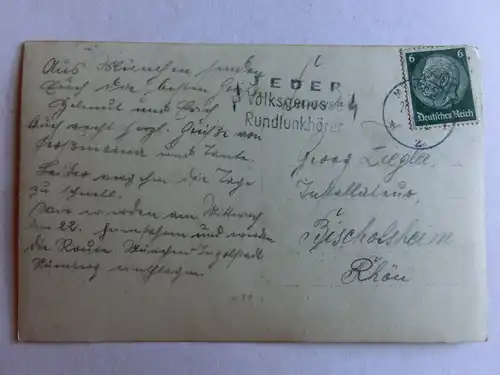 Aus München senden
Euch die besten Grüße
Helmut und
Auch recht herzl. Grüße von
Großmama und Tante.
Leider vergehen die Tage
zu schnell.
Wir werden am Mittwoch
den 22. heimfahren und werden
die Route München-Ingolstadt
Nürnberg einschlagen.
JEDER
Volksgenosse
Rundfunkhörer
6 6
Deutsches Reich
Georg Ziegler
Installateur,
Bischofsheim
Rhön